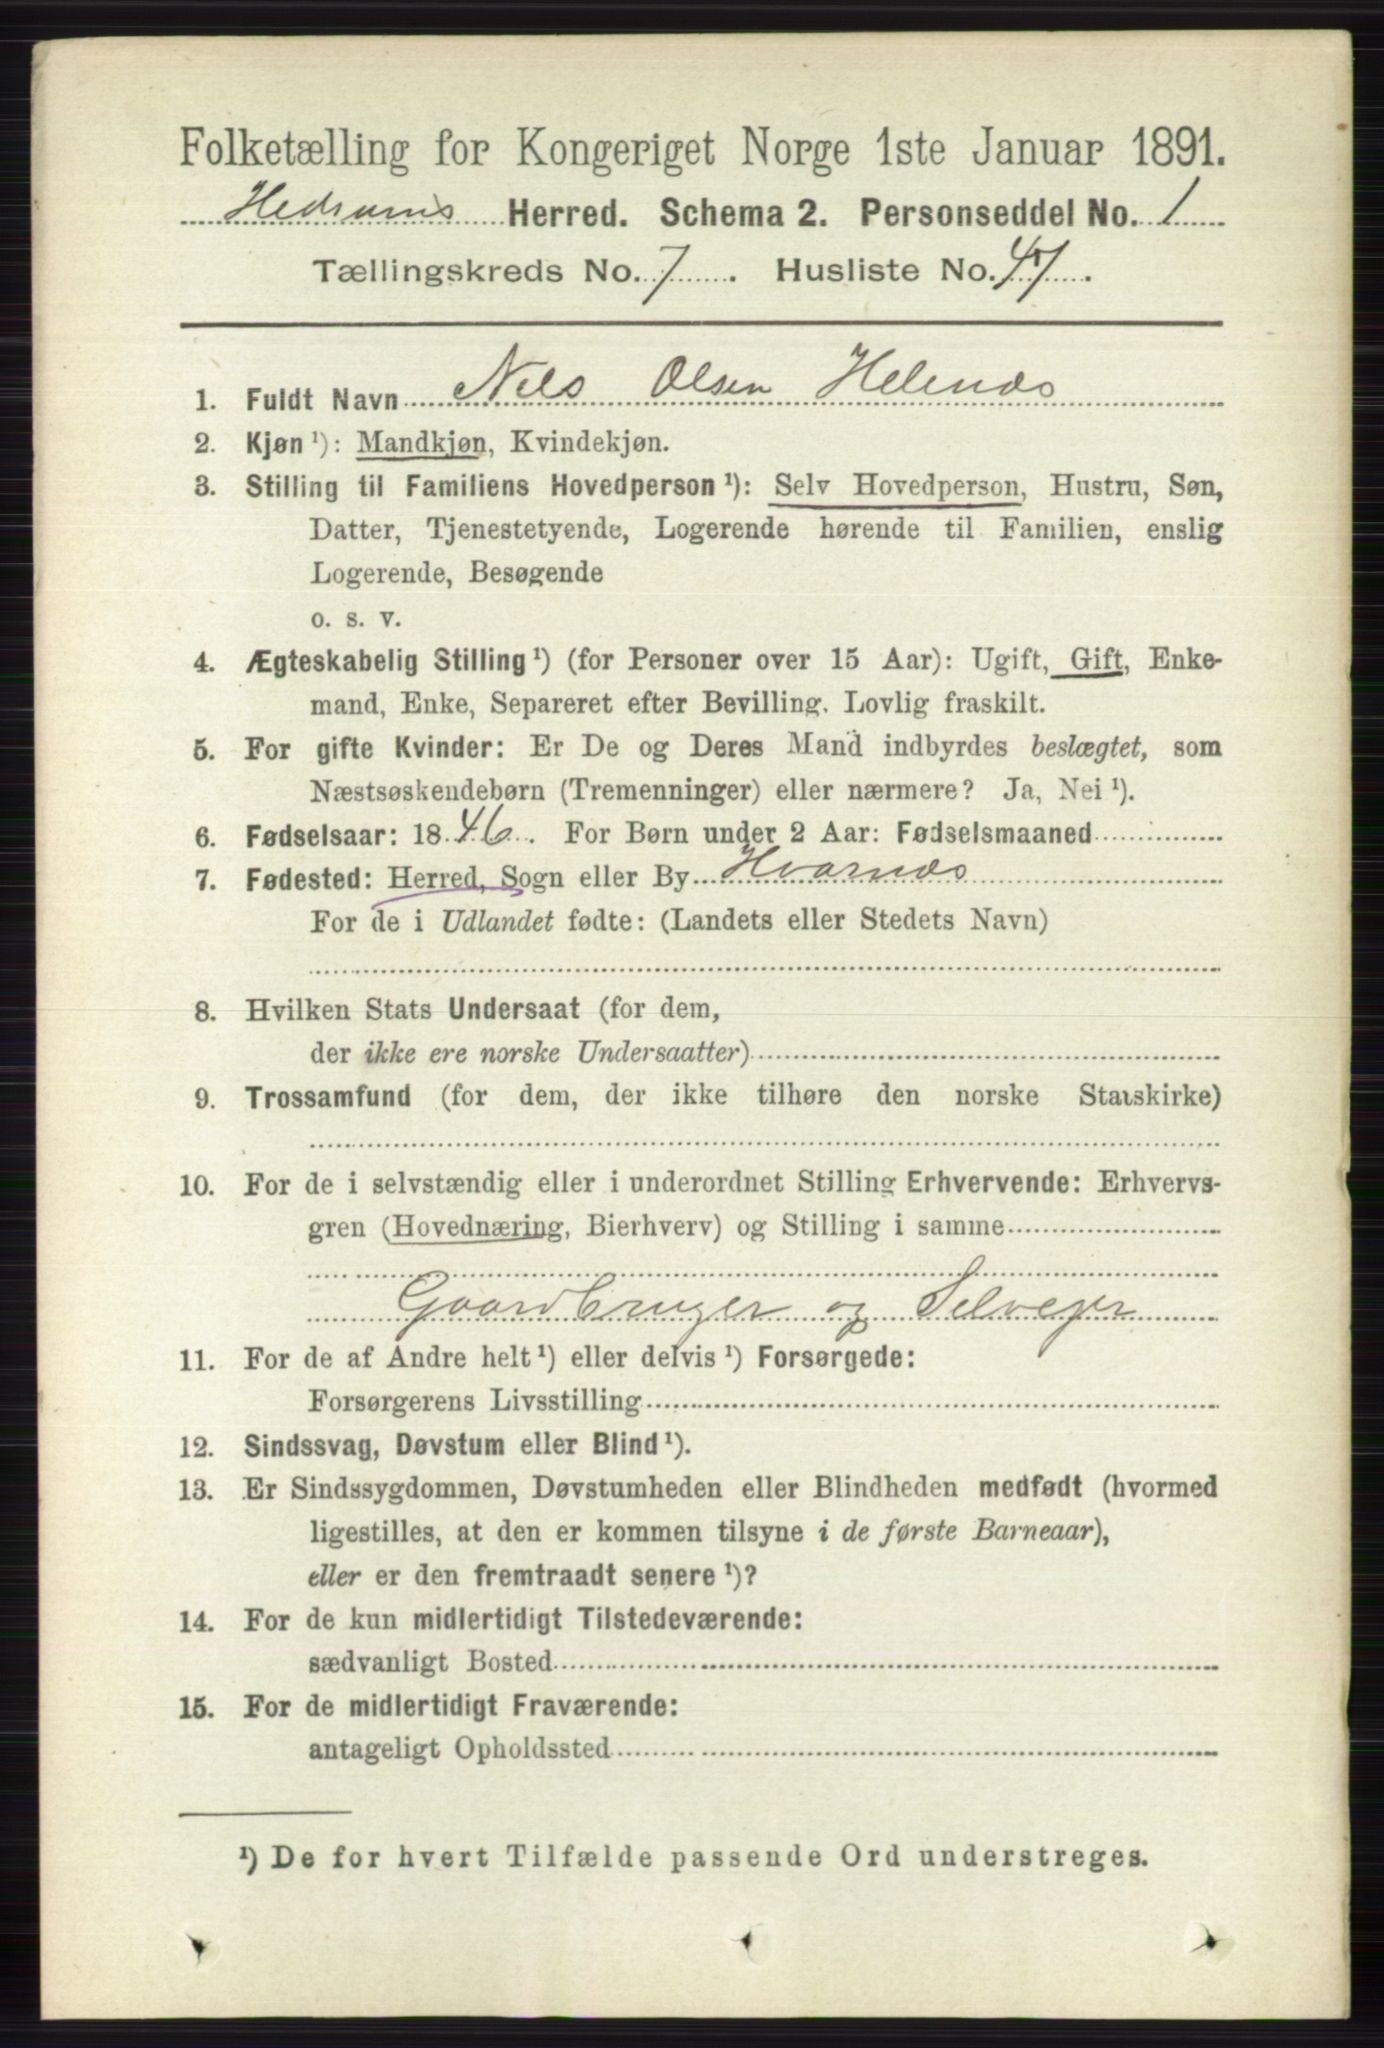 Folketælling for Kongeriget Norge 1ste Januar 1891.
Hedrums Herred. Schema 2. Personseddel No. 1
Tællingskreds No. 7. Husliste No. 47.
1. Fuldt Navn Nils Olsen Helenæs
2. Kjøn¹): Mandkjøn, Kvindekjøn.
3. Stilling til Familiens Hovedperson¹): Selv Hovedperson, Hustru, Søn,
Datter, Tjenestetyende, Logerende hørende til Familien, enslig
Logerende, Besøgende
o. s. v.
4. Ægteskabelig Stilling¹) (for Personer over 15 Aar): Ugift, Gift, Enke-
mand, Enke, Separeret efter Bevilling. Lovlig fraskilt.
5. For gifte Kvinder: Er De og Deres Mand indbyrdes beslægtet, som
Næstsøskendebørn (Tremenninger) eller nærmere? Ja, Nei¹).
6. Fødselsaar: 1846. For Børn under 2 Aar: Fødselsmaaned
7. Fødested: Herred, Sogn eller By Hvarnæs
For de i Udlandet fødte: (Landets eller Stedets Navn)
8. Hvilken Stats Undersaat (for dem,
der ikke ere norske Undersaatter)
9. Trossamfund (for dem, der ikke tilhøre den norske Statskirke)
10. For de i selvstændig eller i underordnet Stilling Erhvervende: Erhvervs-
gren (Hovednæring, Bierhverv) og Stilling i samme
Gaardbruger og Selvejer
11. For de af Andre helt¹) eller delvis¹) Forsørgede:
Forsørgerens Livsstilling
12. Sindssvag, Døvstum eller Blind¹).
13. Er Sindssygdommen, Døvstumheden eller Blindheden medfødt (hvormed
ligestilles, at den er kommen tilsyne i de første Barneaar),
eller er den fremtraadt senere¹)?
14. For de kun midlertidigt Tilstedeværende:
sædvanligt Bosted
15. For de midlertidigt Fraværende:
antageligt Opholdssted
¹) De for hvert Tilfælde passende Ord understreges.